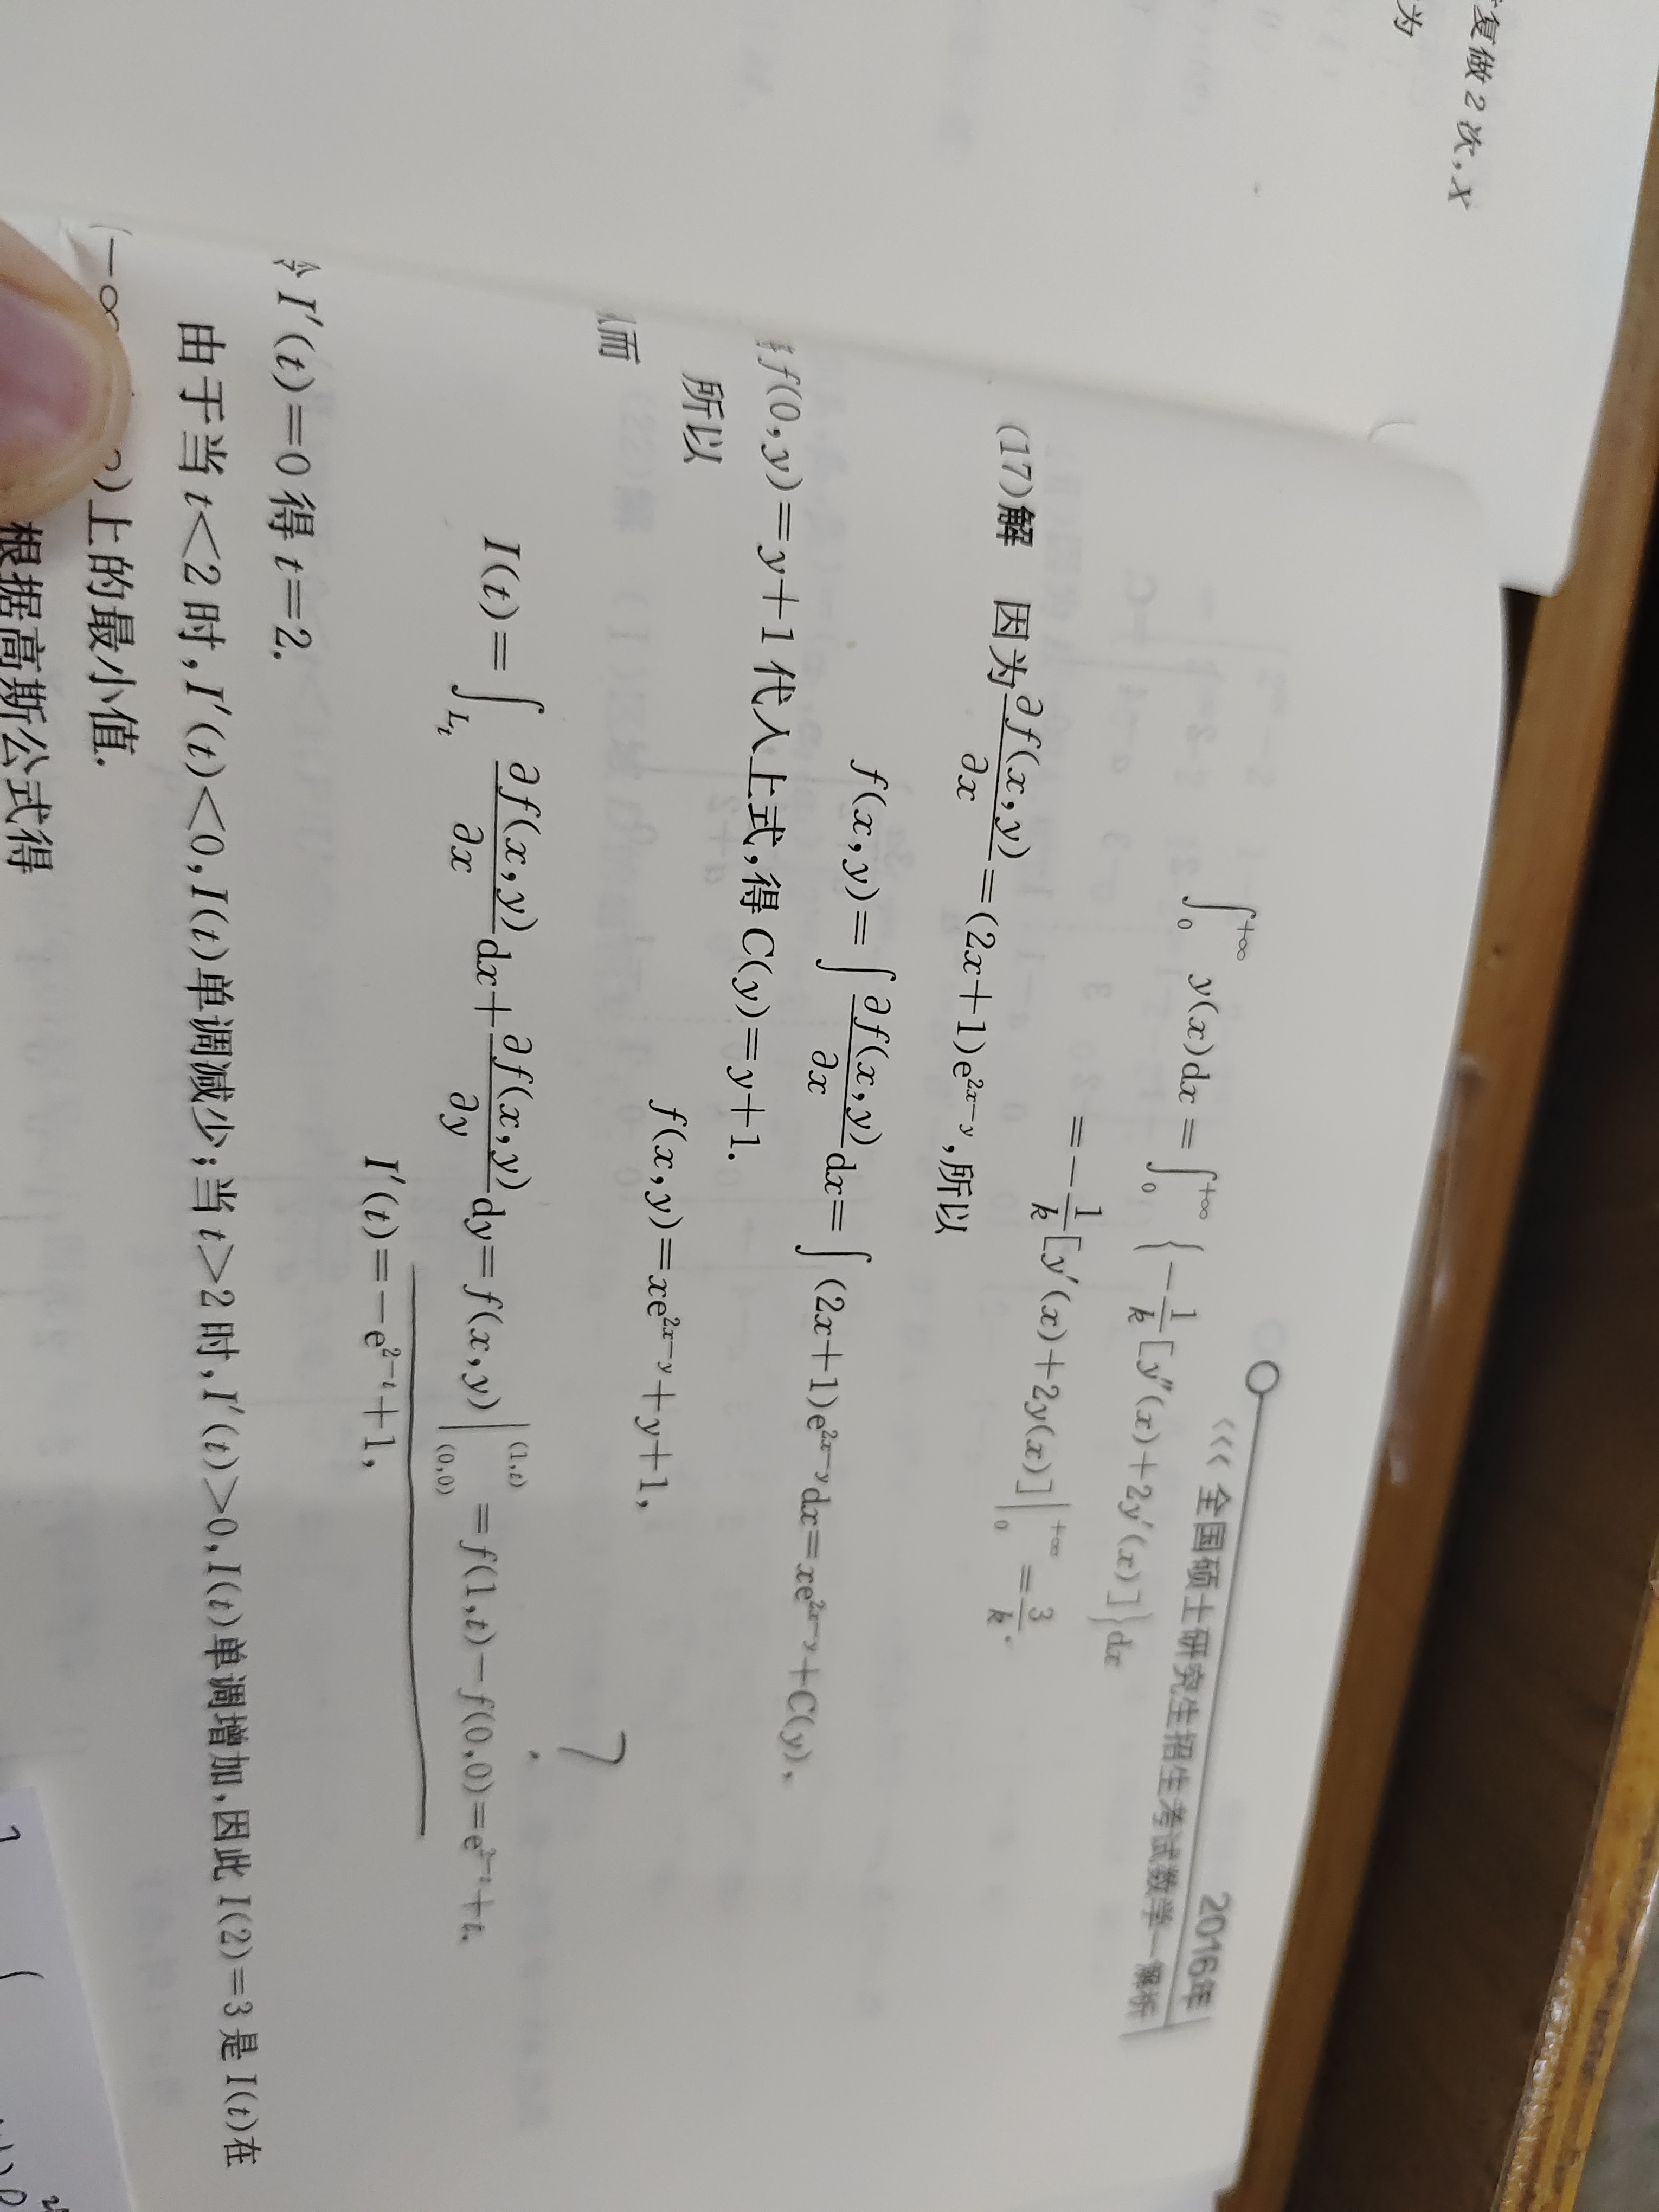 复做2次,X
为
2016年
<<< 全国硕士研究生招生考试数学一解析
∫₀^{+∞} y(x)dx = ∫₀^{+∞} {-1/k[y″(x)+2y′(x)]}dx
= -1/k[y′(x)+2y(x)]|₀^{+∞} = 3/k.
(17)解 因为∂f(x,y)/∂x=(2x+1)e^{2x-y},所以
f(x,y)=∫∂f(x,y)/∂x dx=∫(2x+1)e^{2x-y}dx=xe^{2x-y}+C(y),
f(0,y)=y+1代入上式,得C(y)=y+1.
所以
f(x,y)=xe^{2x-y}+y+1,
而
I(t)=∫_{L_t} ∂f(x,y)/∂x dx+∂f(x,y)/∂y dy=f(x,y)|_{(0,0)}^{(1,t)}=f(1,t)-f(0,0)=e^{2-t}+t.
I′(t)=-e^{2-t}+1,
令I′(t)=0得t=2.
由于当t<2时,I′(t)<0,I(t)单调减少;当t>2时,I′(t)>0,I(t)单调增加,因此I(2)=3是I(t)在
(-∞ )上的最小值.
根据高斯公式得